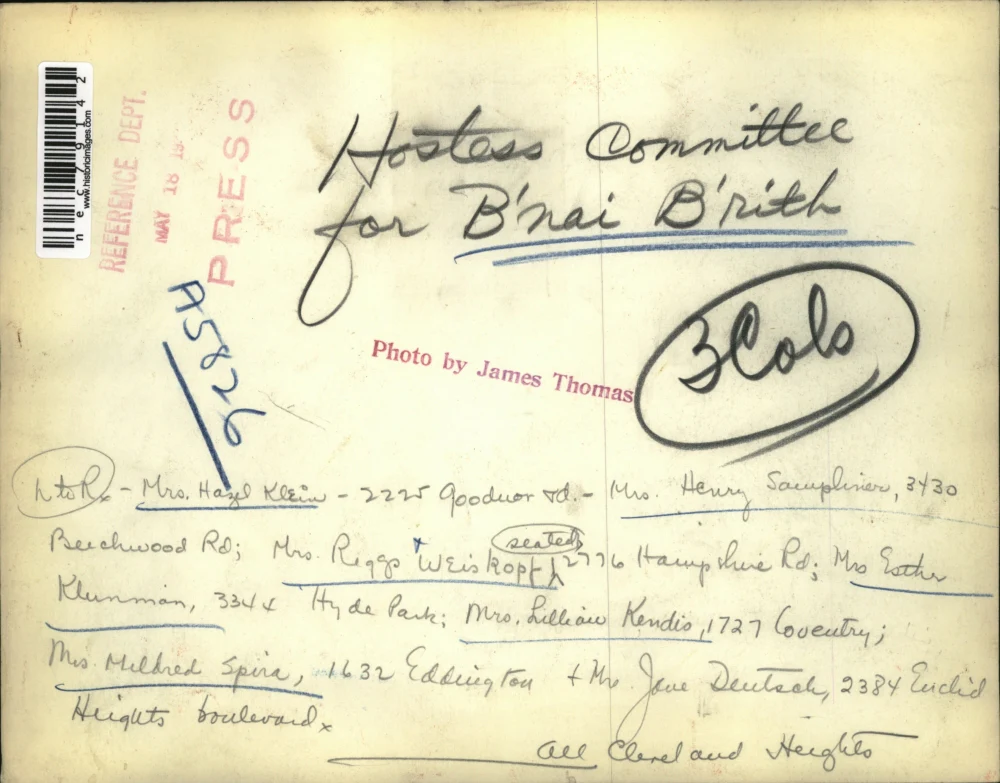 nec79142
www.historicimages.com
REFERENCE DEPT.
MAY 18 19
PRESS
Hostess Committee
for B'nai B'rith
H5826
Photo by James Thomas
3 Cols
L to R x - Mrs. Hazel Klein - 2225 Goodnor rd. - Mrs. Henry Sampliner, 3430
Beechwood Rd; Mrs. Riggs Weiskopf (seated) 2776 Hampshire Rd; Mrs Esther
Klinman, 3344 Hyde Park; Mrs. Lillian Kendis, 1727 Coventry;
Mrs. Mildred Spira, 1632 Eddington + Mrs. Jane Deutsch, 2384 Euclid
Heights boulevard x
All Cleveland Heights